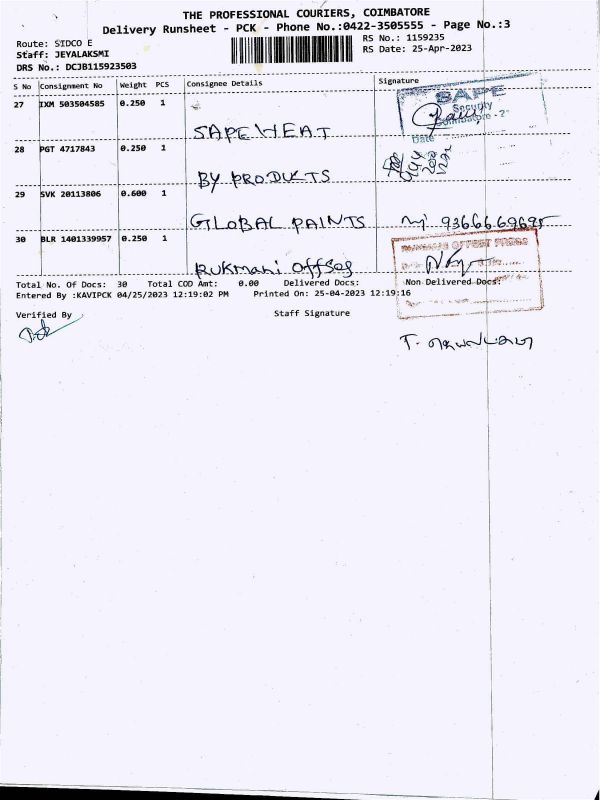 THE PROFESSIONAL COURIERS, COIMBATORE
Delivery Runsheet - PCK - Phone No.:0422-3505555 - Page No.:3
Route: SIDCO E
RS No.: 1159235
Staff: JEYALAKSMI
RS Date: 25-Apr-2023
DRS No.: DCJB115923503
S No Consignment No Weight PCS Consignee Details Signature
27 IXM 503504585 0.250 1
SAPE HEAT
SAPE
Security
Date
28 PGT 4717843 0.250 1
BY PRODUCTS
29 SVK 20113806 0.600 1
GLOBAL PAINTS
30 BLR 1401339957 0.250 1
Rukmani offset
RUKMANI OFFSET PRESS
Total No. Of Docs: 30 Total COD Amt: 0.00 Delivered Docs: Non Delivered Docs:
Entered By :KAVIPCK 04/25/2023 12:19:02 PM Printed On: 25-04-2023 12:19:16
Verified By Staff Signature